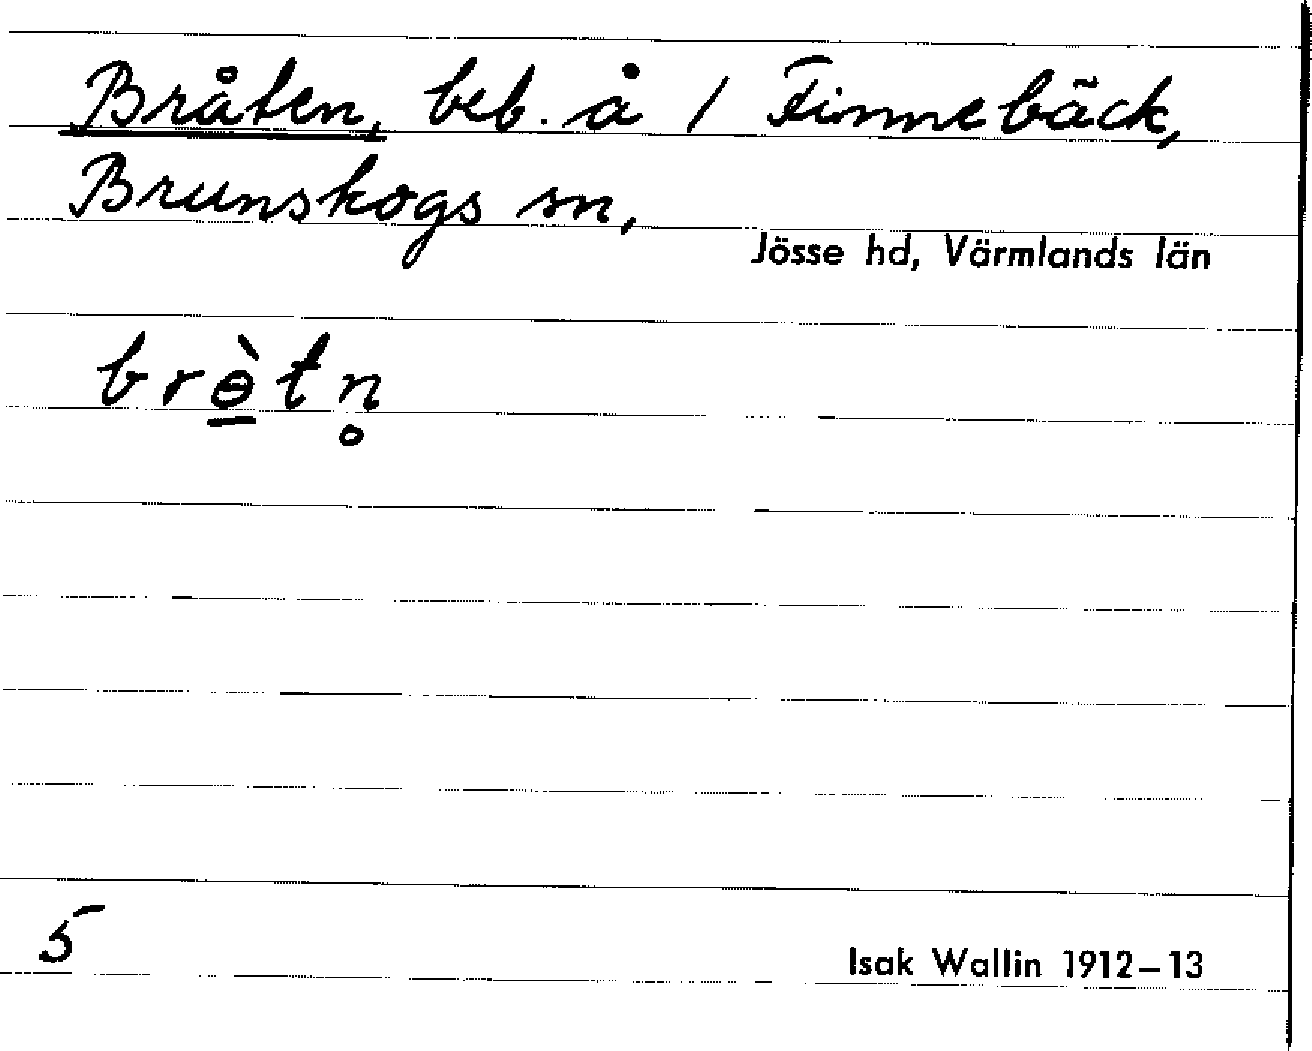 Bråten, beb. å 1 Finnebäck,
Brunskogs sn,
Jösse hd, Värmlands län
brɵ̠̀tn̥
5
Isak Wallin 1912–13